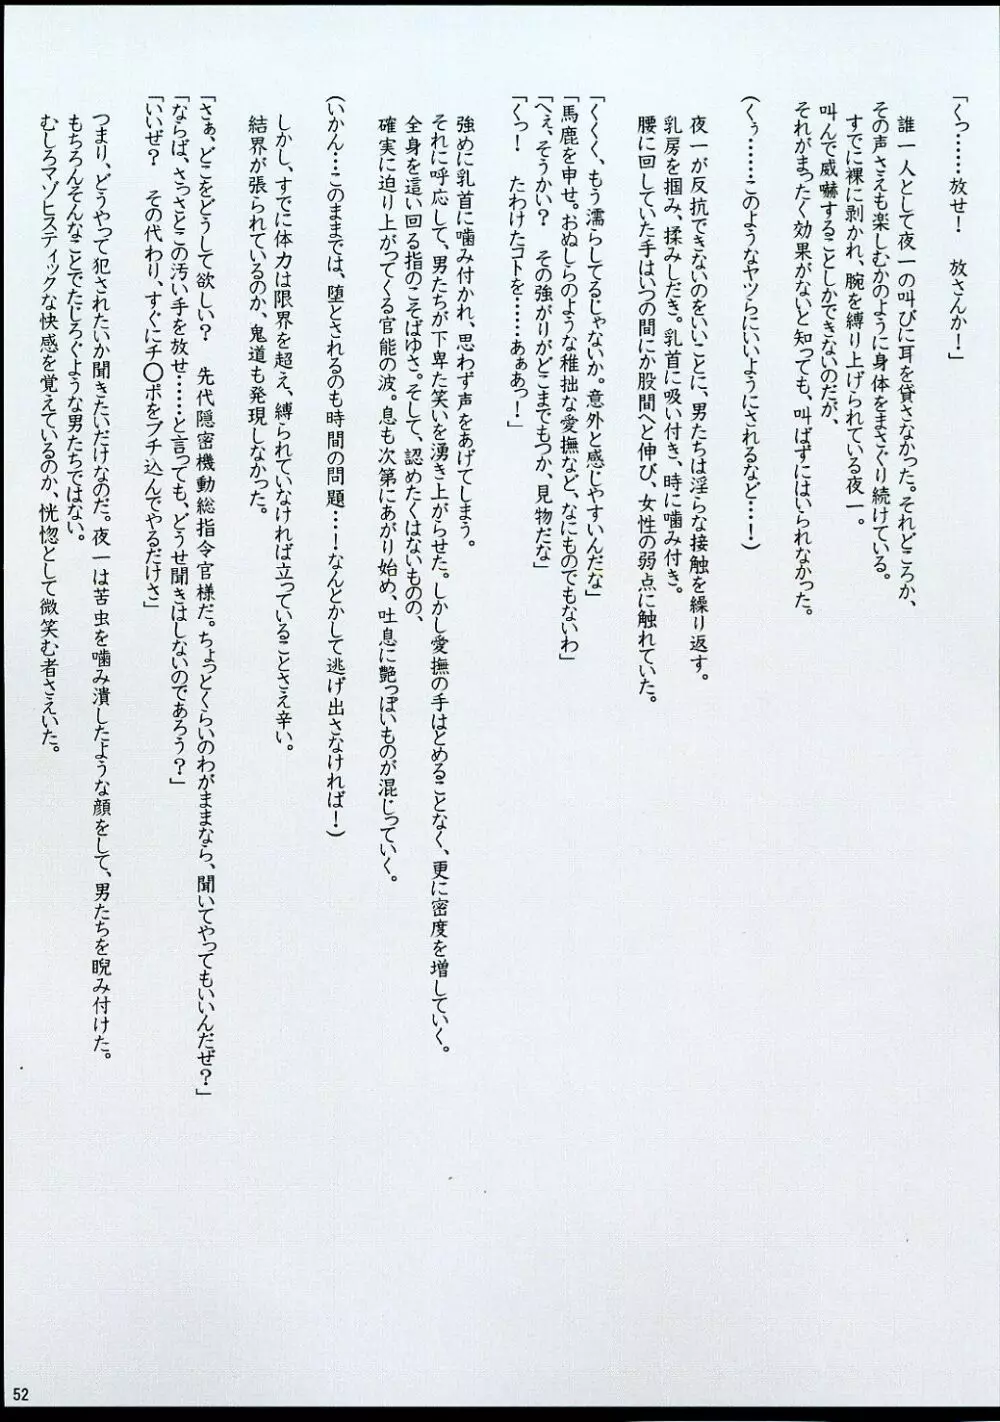 「くっ……放せ！　放さんか！」
誰一人として夜一の叫びに耳を貸さなかった。それどころか、
その声さえも楽しむかのように身体をまさぐり続けている。
すでに裸に剥かれ、腕を縛り上げられている夜一。
叫んで威嚇することしかできないのだが、
それがまったく効果がないと知っても、叫ばずにはいられなかった。
(くぅ………このようなヤツらにいいようにされるなど……！)
夜一が反抗できないのをいいことに、男たちは淫らな接触を繰り返す。
乳房を掴み、揉みしだき。乳首に吸い付き、時に噛み付き。
腰に回していた手はいつの間にか股間へと伸び、女性の弱点に触れていた。
「くくく、もう濡らしてるじゃないか。意外と感じやすいんだな」
「馬鹿を申せ。おぬしらのような稚拙な愛撫など、なにものでもないわ」
「へぇ、そうかい？　その強がりがどこまでもつか、見物だな」
「くっ！　たわけたコトを……あぁあっ！」
強めに乳首に噛み付かれ、思わず声をあげてしまう。
それに呼応して、男たちが下卑た笑いを湧き上がらせた。しかし愛撫の手はとめることなく、更に密度を増していく。
全身を這い回る指のこそばゆさ。そして、認めたくはないものの、
確実に迫り上がってくる官能の波。息も次第にあがり始め、吐息に艶っぽいものが混じっていく。
(いかん…このままでは、堕とされるのも時間の問題…！なんとかして逃げ出さなければ！)
しかし、すでに体力は限界を超え、縛られていなければ立っていることさえ辛い。
結界が張られているのか、鬼道も発現しなかった。
「さぁ、どこをどうして欲しい？　先代隠密機動総指令官様だ。ちょっとくらいのわがままなら、聞いてやってもいいんだぜ？」
「ならば、さっさとこの汚い手を放せ……と言っても、どうせ聞きはしないのであろう？」
「いいぜ？　その代わり、すぐにチ○ポをブチ込んでやるだけさ」
つまり、どうやって犯されたいか聞きたいだけなのだ。夜一は苦虫を噛み潰したような顔をして、男たちを睨み付けた。
もちろんそんなことでたじろぐような男たちではない。
むしろマゾヒスティックな快感を覚えているのか、恍惚として微笑む者さえいた。
52